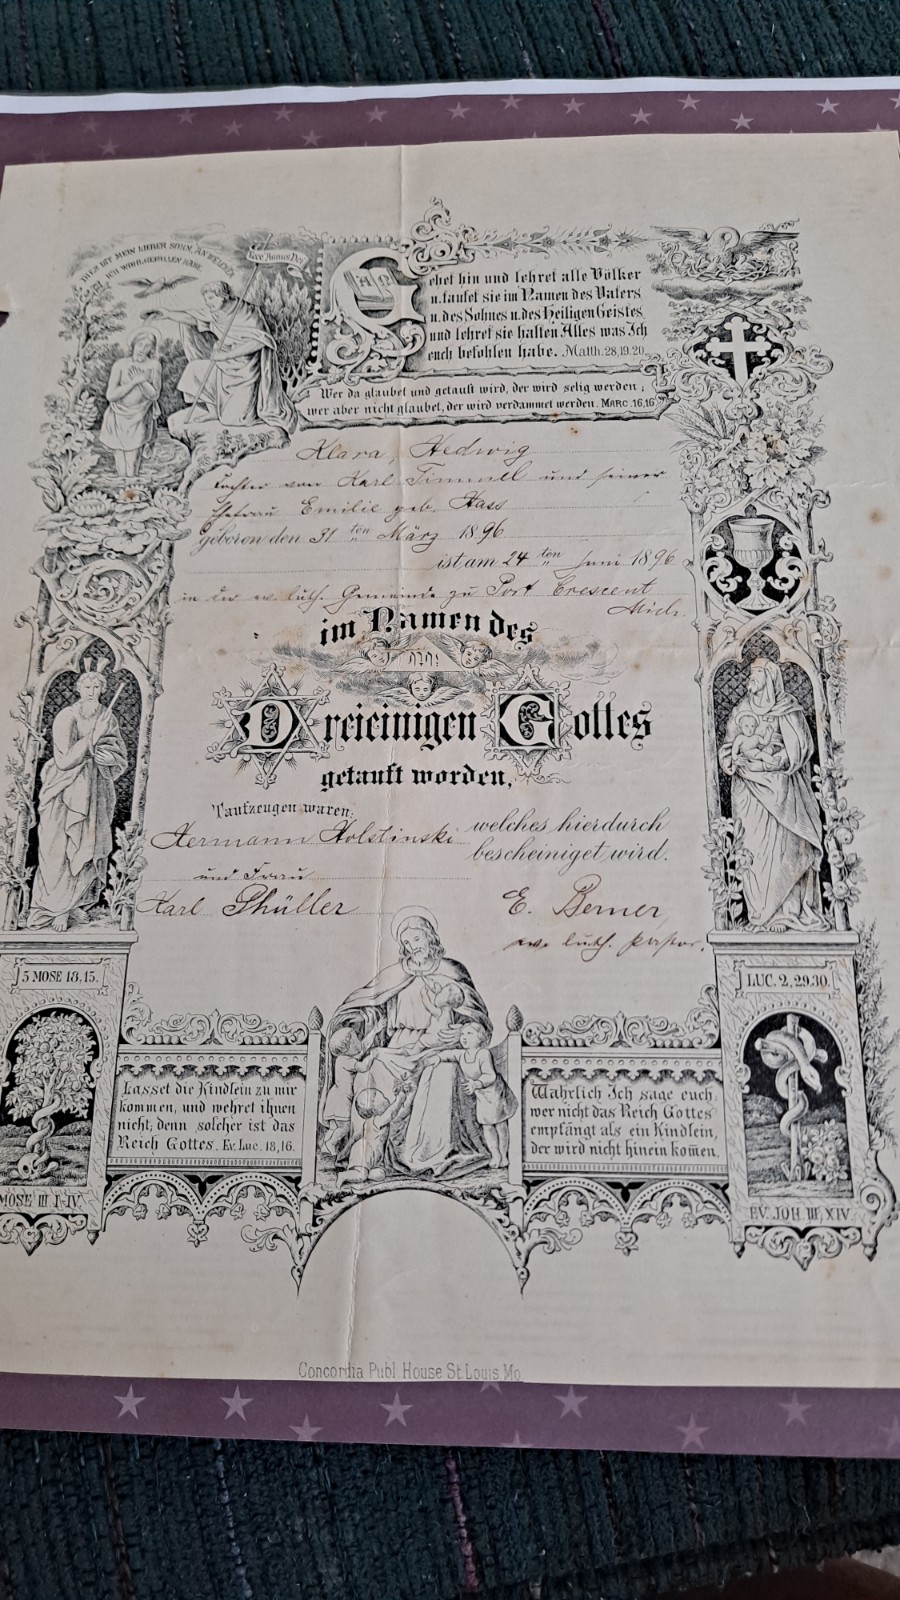 DIES IST MEIN LIEBER SOHN, AN WELCHEM
ICH WOHLGEFALLEN HABE
Ecce Agnus Dei
Gehet hin und lehret alle Völker
u. taufet sie im Namen des Vaters
u. des Sohnes u. des Heiligen Geistes
und lehret sie halten Alles was Ich
euch befohlen habe. Matth. 28,19.20.
Wer da glaubet und getauft wird, der wird selig werden;
wer aber nicht glaubet, der wird verdammet werden. MARC. 16,16.
Klara, Hedwig
Tochter von Karl Timmel und seiner
Ehefrau Emilie geb. Hass
geboren den 31ten März 1896
ist am 24ten Juni 1896
in der ev. luth. Gemeinde zu Port Crescent
Mich.
im Namen des
Dreieinigen Gottes
getauft worden,
Taufzeugen waren:
Hermann Holstinski
und Frau
Karl Schüller
welches hierdurch
bescheiniget wird.
E. Berner
ev. luth. Pastor.
5 MOSE 18,15.
LUC. 2, 29.30.
Lasset die Kindlein zu mir
kommen, und wehret ihnen
nicht; denn solcher ist das
Reich Gottes. Ev. Luc. 18,16.
Wahrlich Ich sage euch,
wer nicht das Reich Gottes
empfängt als ein Kindlein,
der wird nicht hinein kom̄en.
MOSE III I-IV
EV. JOH III, XIV.
Concordia Publ. House St. Louis, Mo.